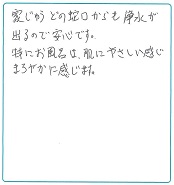 家じゅう どの蛇口からも浄水が
出るので安心です。
特にお風呂は、肌にやさしい感じ
まろやかに感じます。